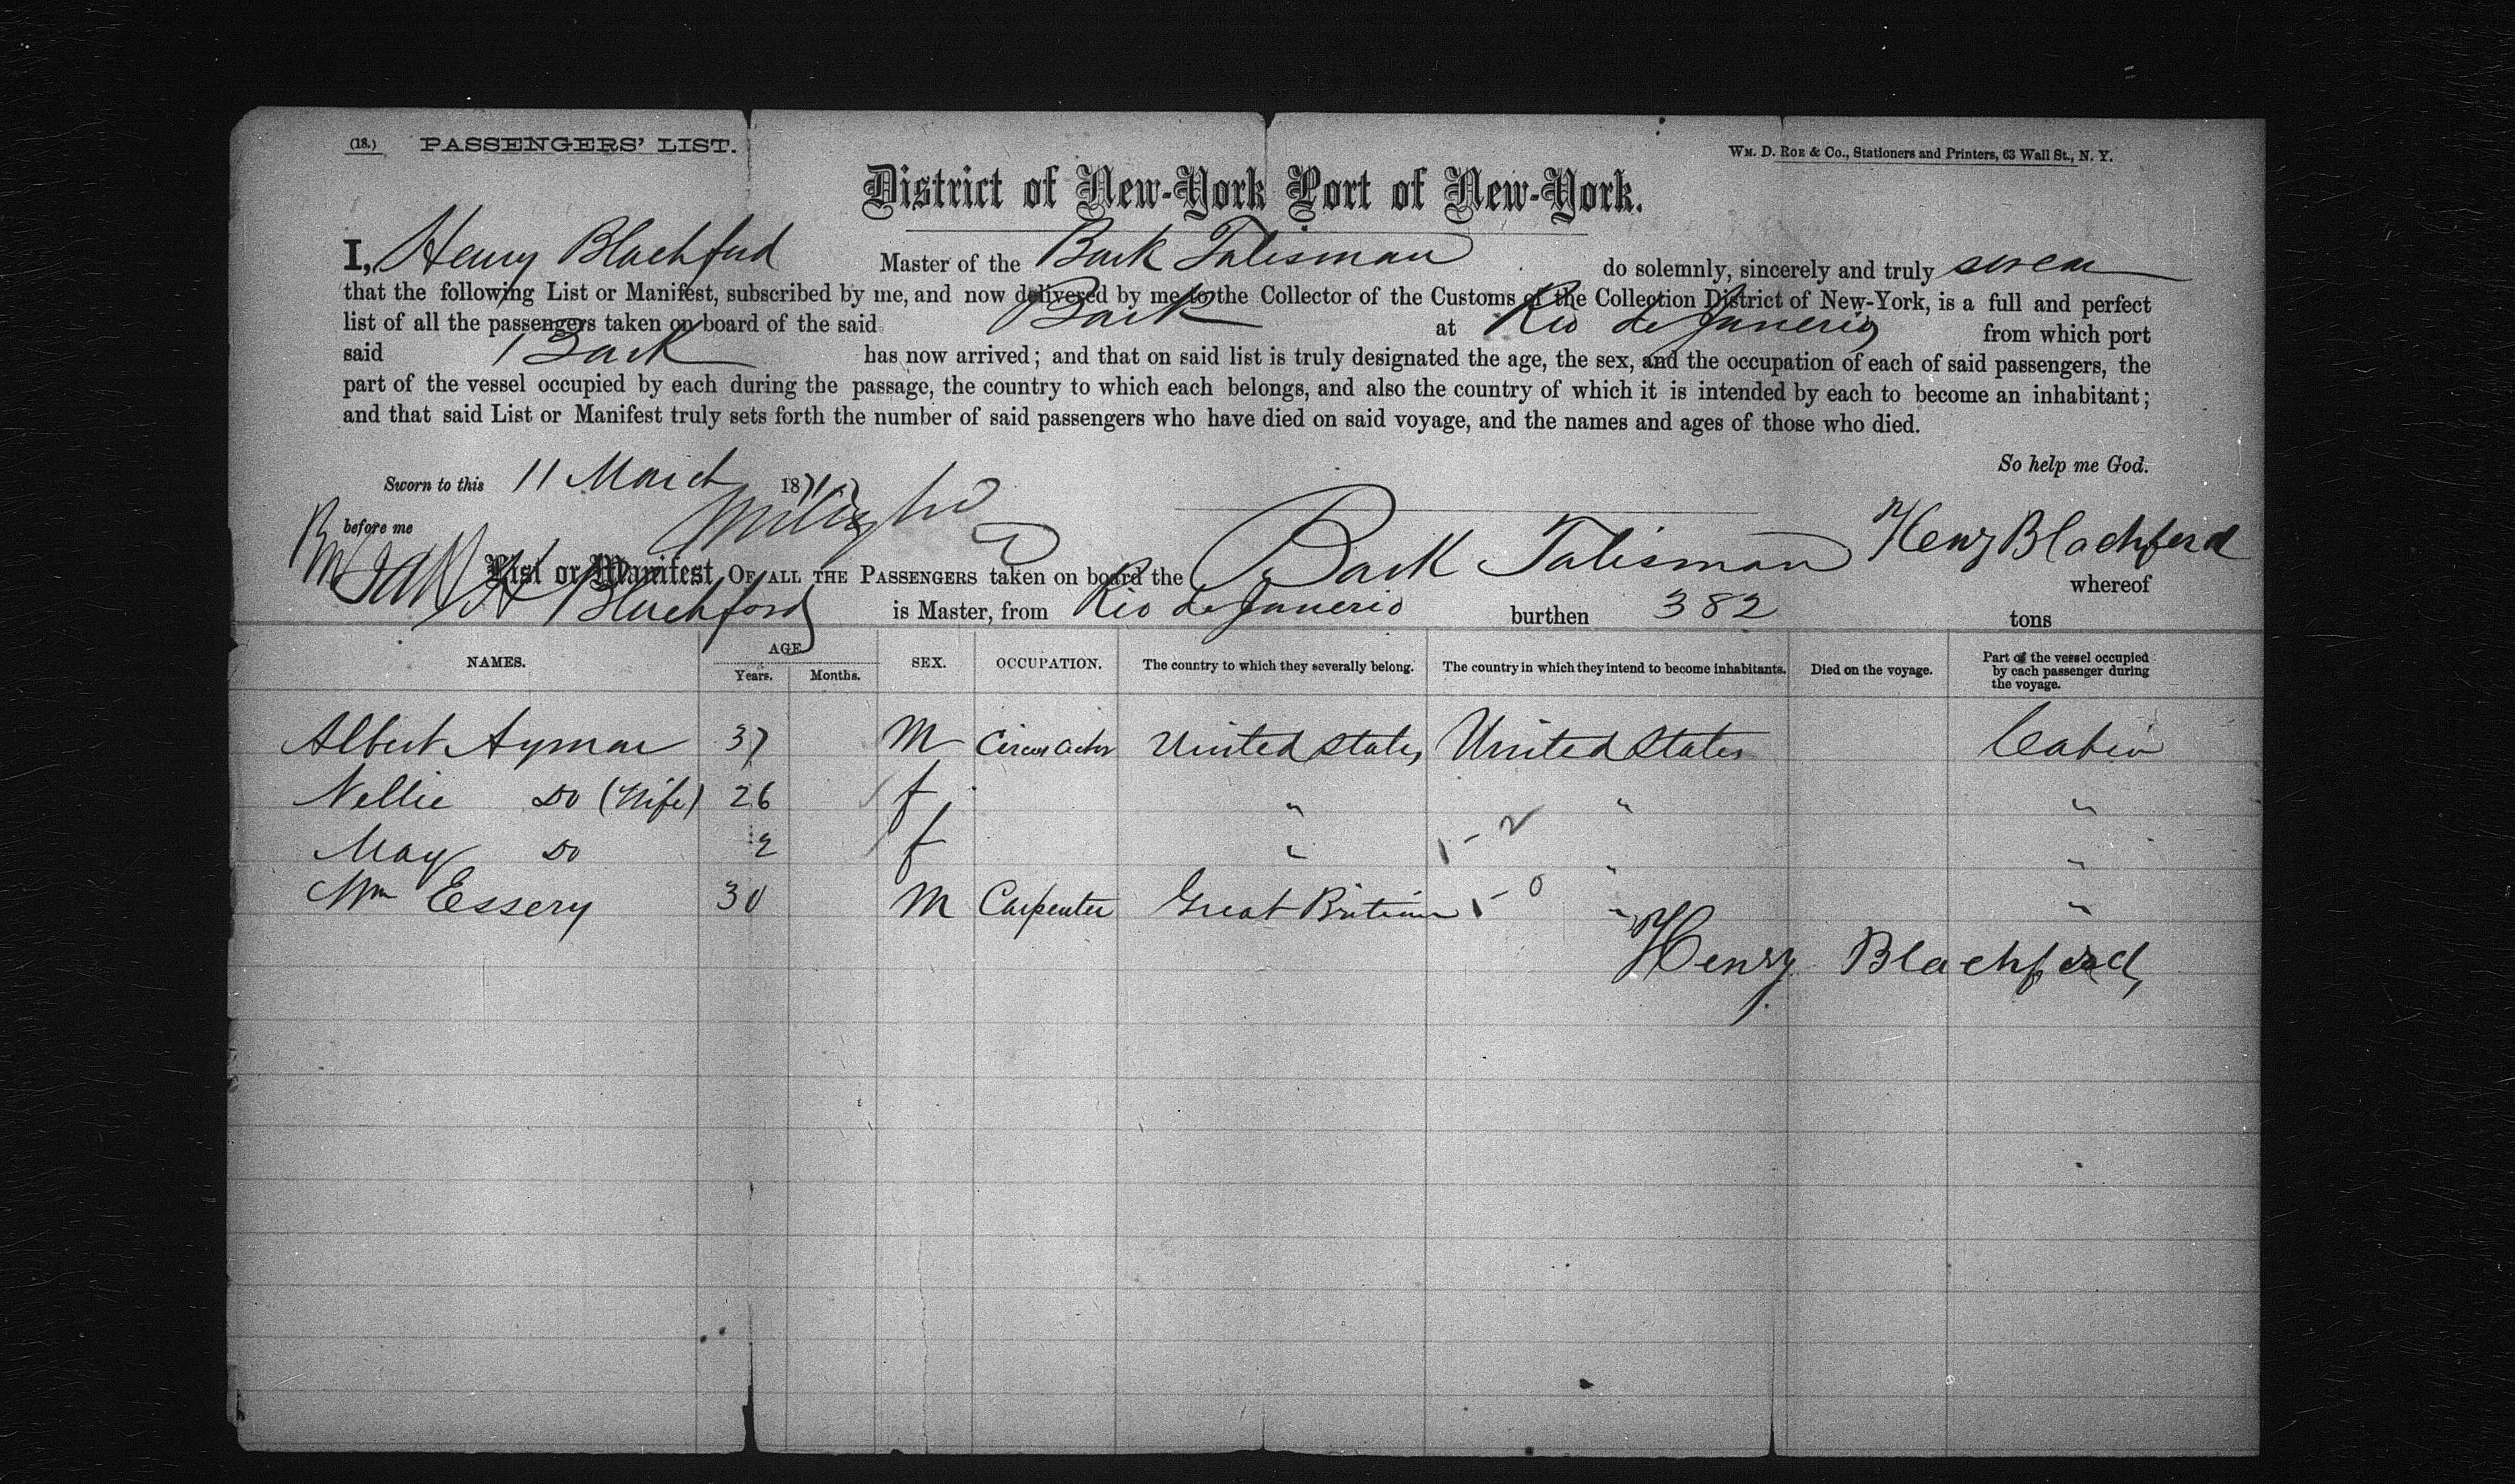 (18.) PASSENGERS' LIST.
WM. D. ROE & CO., Stationers and Printers, 63 Wall St., N. Y.
District of New-York Port of New-York.
I, Henry Blachford Master of the Bark Talisman do solemnly, sincerely and truly swear
that the following List or Manifest, subscribed by me, and now delivered by me to the Collector of the Customs of the Collection District of New-York, is a full and perfect
list of all the passengers taken on board of the said Bark at Rio de Janerio from which port
said Bark has now arrived; and that on said list is truly designated the age, the sex, and the occupation of each of said passengers, the
part of the vessel occupied by each during the passage, the country to which each belongs, and also the country of which it is intended by each to become an inhabitant;
and that said List or Manifest truly sets forth the number of said passengers who have died on said voyage, and the names and ages of those who died.
So help me God.
Sworn to this 11 March 1871
before me
Henry Blachford
List or Manifest OF ALL THE PASSENGERS taken on board the Bark Talisman whereof
H Blachford is Master, from Rio de Janerio burthen 382 tons
NAMES. AGE Years. Months. SEX. OCCUPATION. The country to which they severally belong. The country in which they intend to become inhabitants. Died on the voyage. Part of the vessel occupied by each passenger during the voyage.
Albert Aymar 37 M Circus actor United States United States Cabin
Nellie Do (Wife) 26 f " " "
May Do 2 f " 1 - 2 " "
Wm Essery 30 M Carpenter Great Britian 1 - 0 " "
Henry Blachford